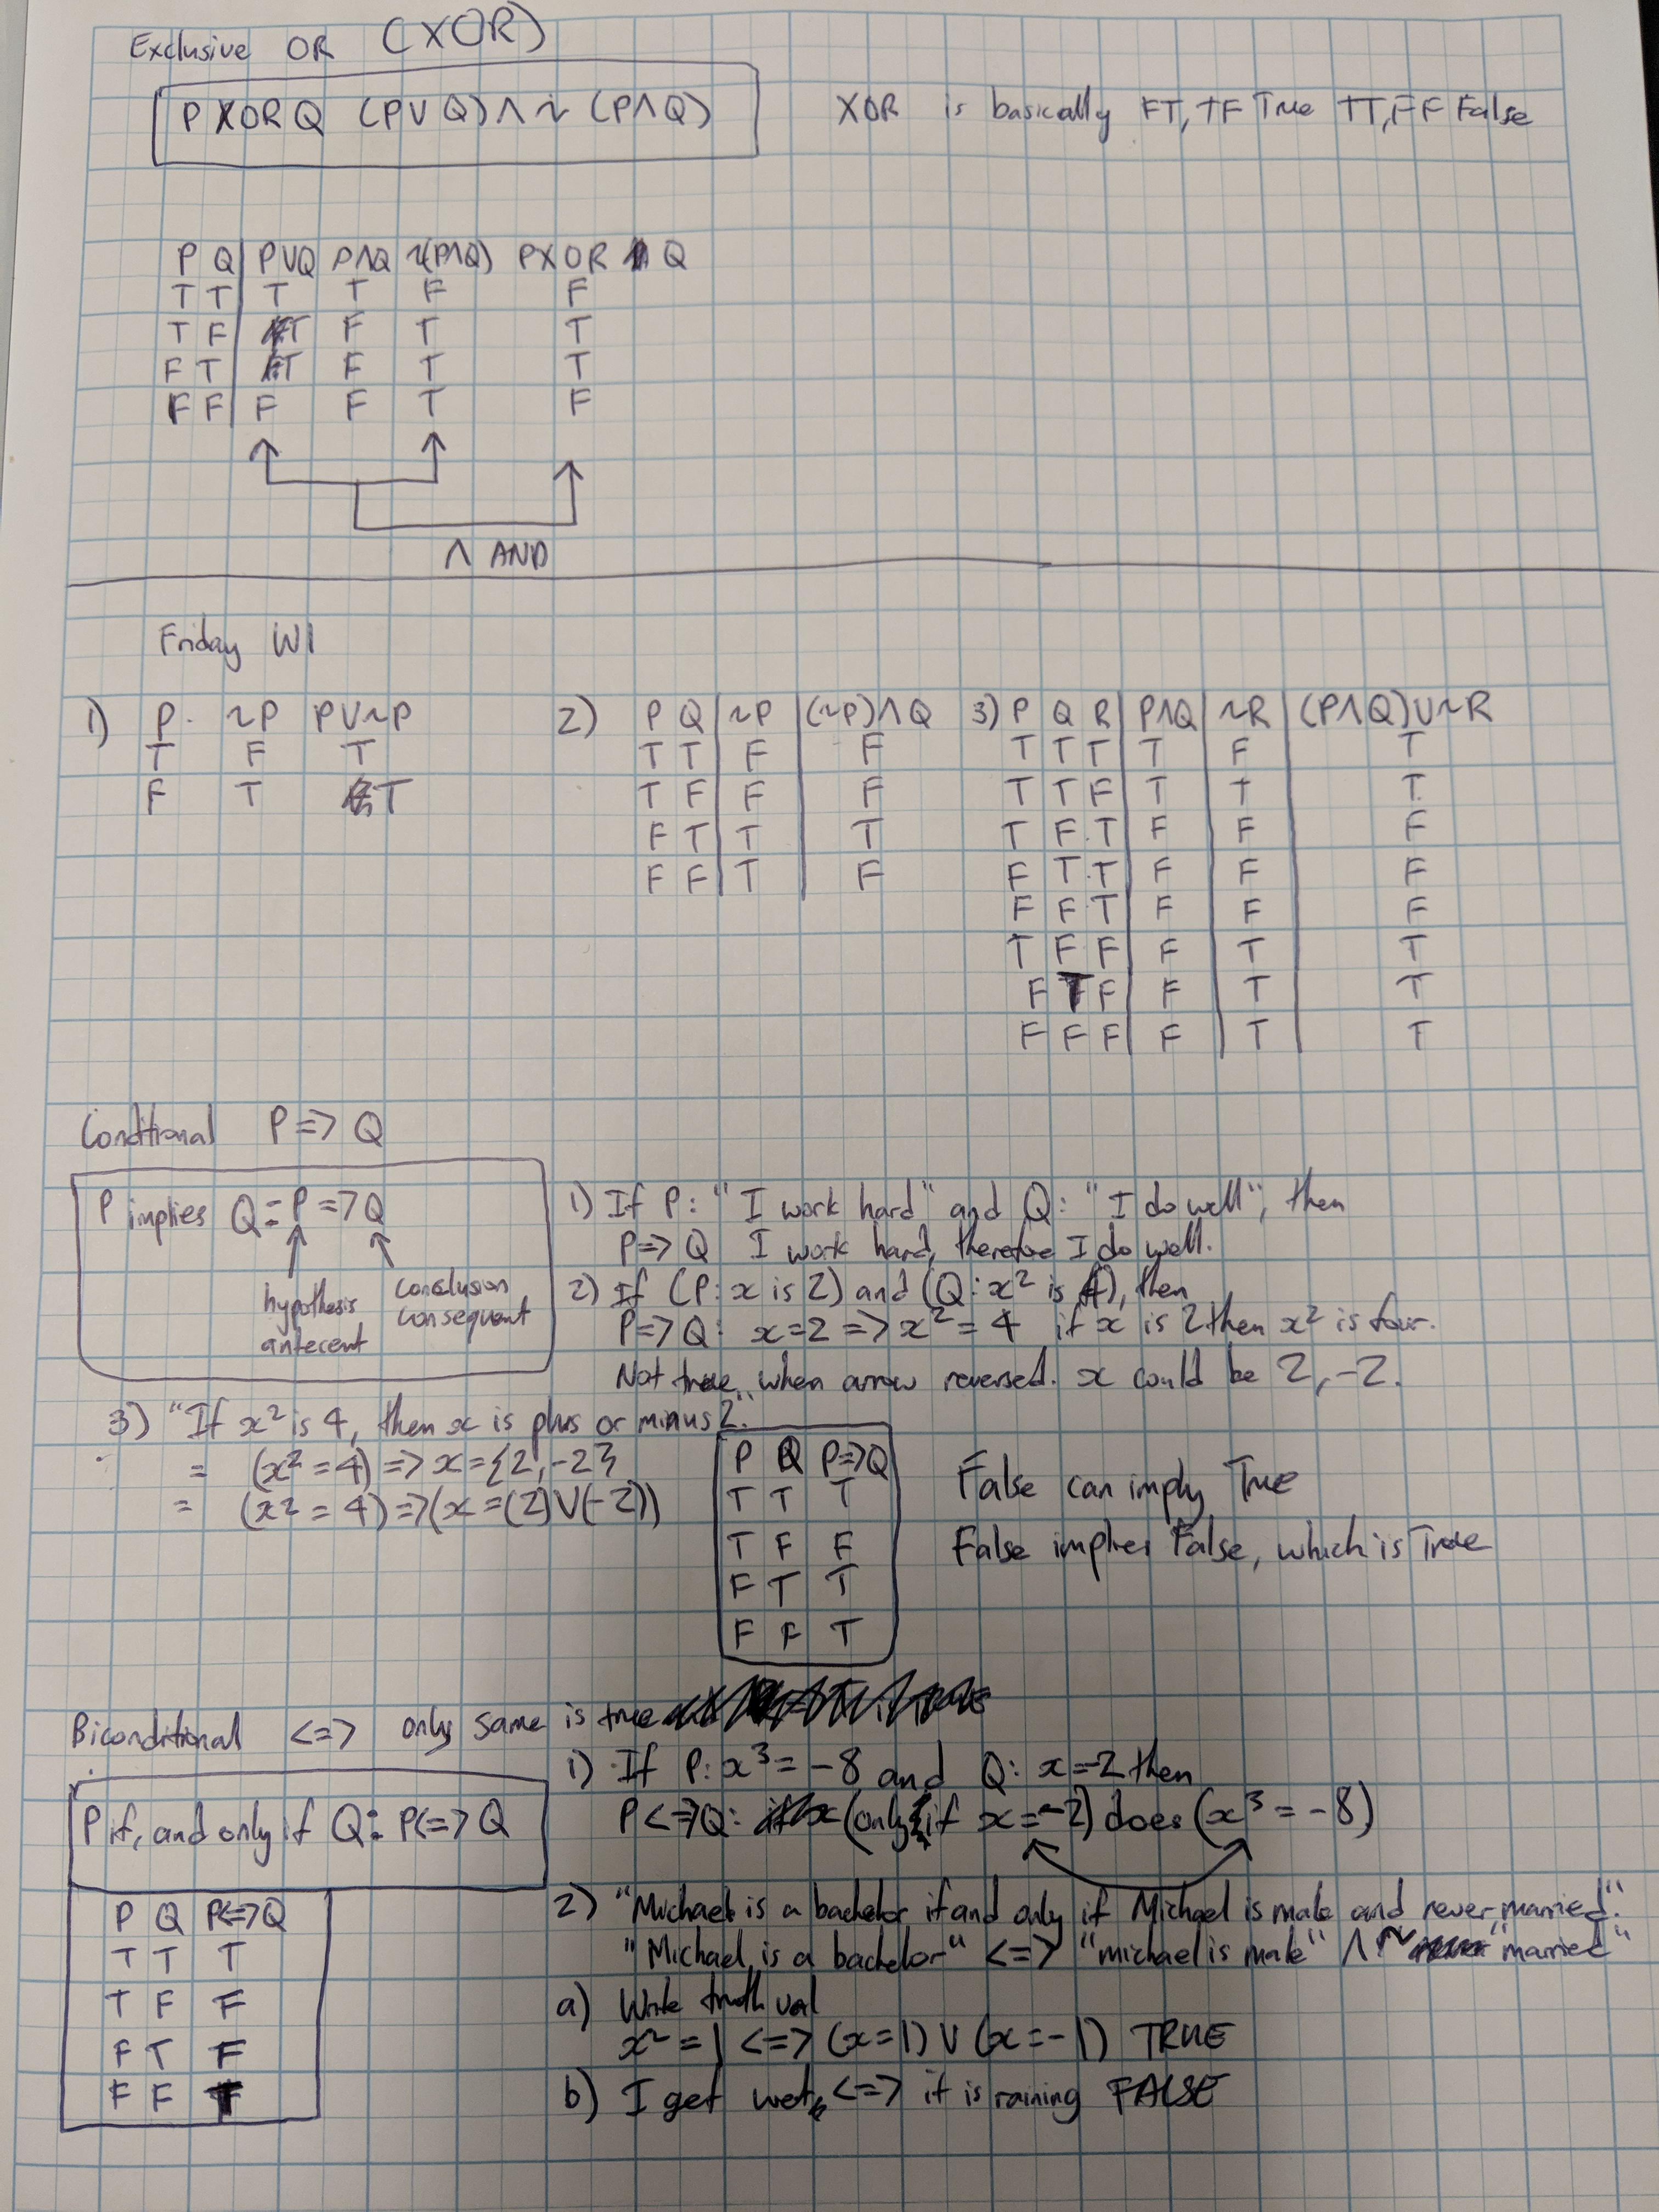 Exclusive OR (XOR)
P XOR Q (P∨Q)∧~(P∧Q)
XOR is basically FT, TF True TT, FF False
P Q P∨Q P∧Q ~(P∧Q) P XOR Q
T T T T F F
T F T F T T
F T T F T T
F F F F T F
∧ AND
Friday W1
1) P ~P P∨~P
T F T
F T T
2) P Q ~P (~P)∧Q
T T F F
T F F F
F T T T
F F T F
3) P Q R P∧Q ~R (P∧Q)∨~R
T T T T F T
T T F T T T
T F T F F F
F T T F F F
F F T F F F
T F F F T T
F T F F T T
F F F F T T
Conditional P=>Q
P implies Q = P=>Q
hypothesis
antecent
conclusion
consequent
1) If P: "I work hard" and Q: "I do well", then
P=>Q I work hard, therefore I do well.
2) If (P: x is 2) and (Q: x² is 4), then
P=>Q: x=2 => x²=4 if x is 2 then x² is four.
Not true when arrow reversed. x could be 2,-2.
3) "If x² is 4, then x is plus or minus 2."
= (x²=4) => x={2,-2}
= (x²=4)=>(x=(2)∨(-2))
P Q P=>Q
T T T
T F F
F T T
F F T
False can imply True
False implies False, which is True
Biconditional <=> only same is true
P if, and only if Q: P<=>Q
P Q P<=>Q
T T T
T F F
F T F
F F T
1) If P: x³=-8 and Q: x=-2 then
P<=>Q: (only if x=-2) does (x³=-8)
2) "Michael is a bachelor if and only if Michael is male and never married."
"Michael is a bachelor" <=> "michael is male" ∧ ~ "married"
a) Write truth val
x²=1 <=> (x=1) ∨ (x=-1) TRUE
b) I get wet <=> it is raining FALSE